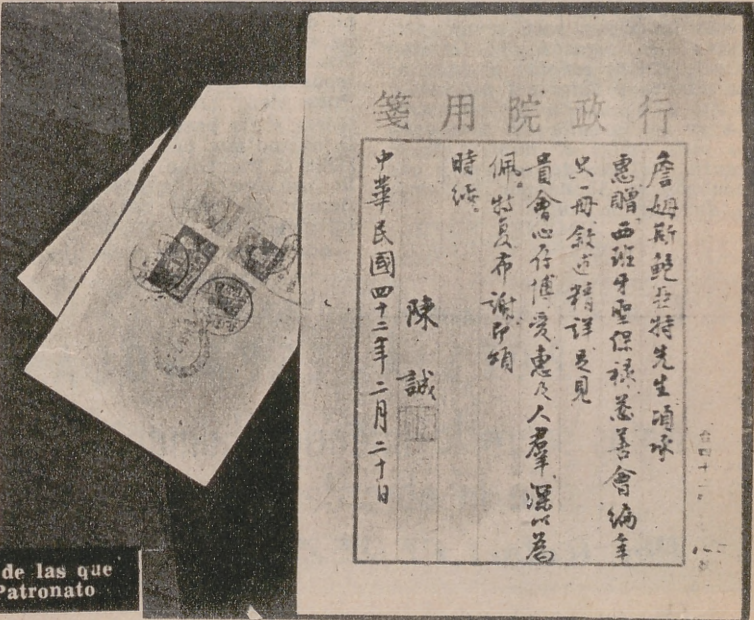 行政院用箋
詹姆斯鮑亞特先生頃承
惠贈西班牙聖保祿慈善會編年
史一冊敘述精詳足見
貴會心存博愛惠及人羣深以為
佩。特复布謝即頌
時綏。
陳誠
中華民國四十二年二月二十日
de las que
Patronato